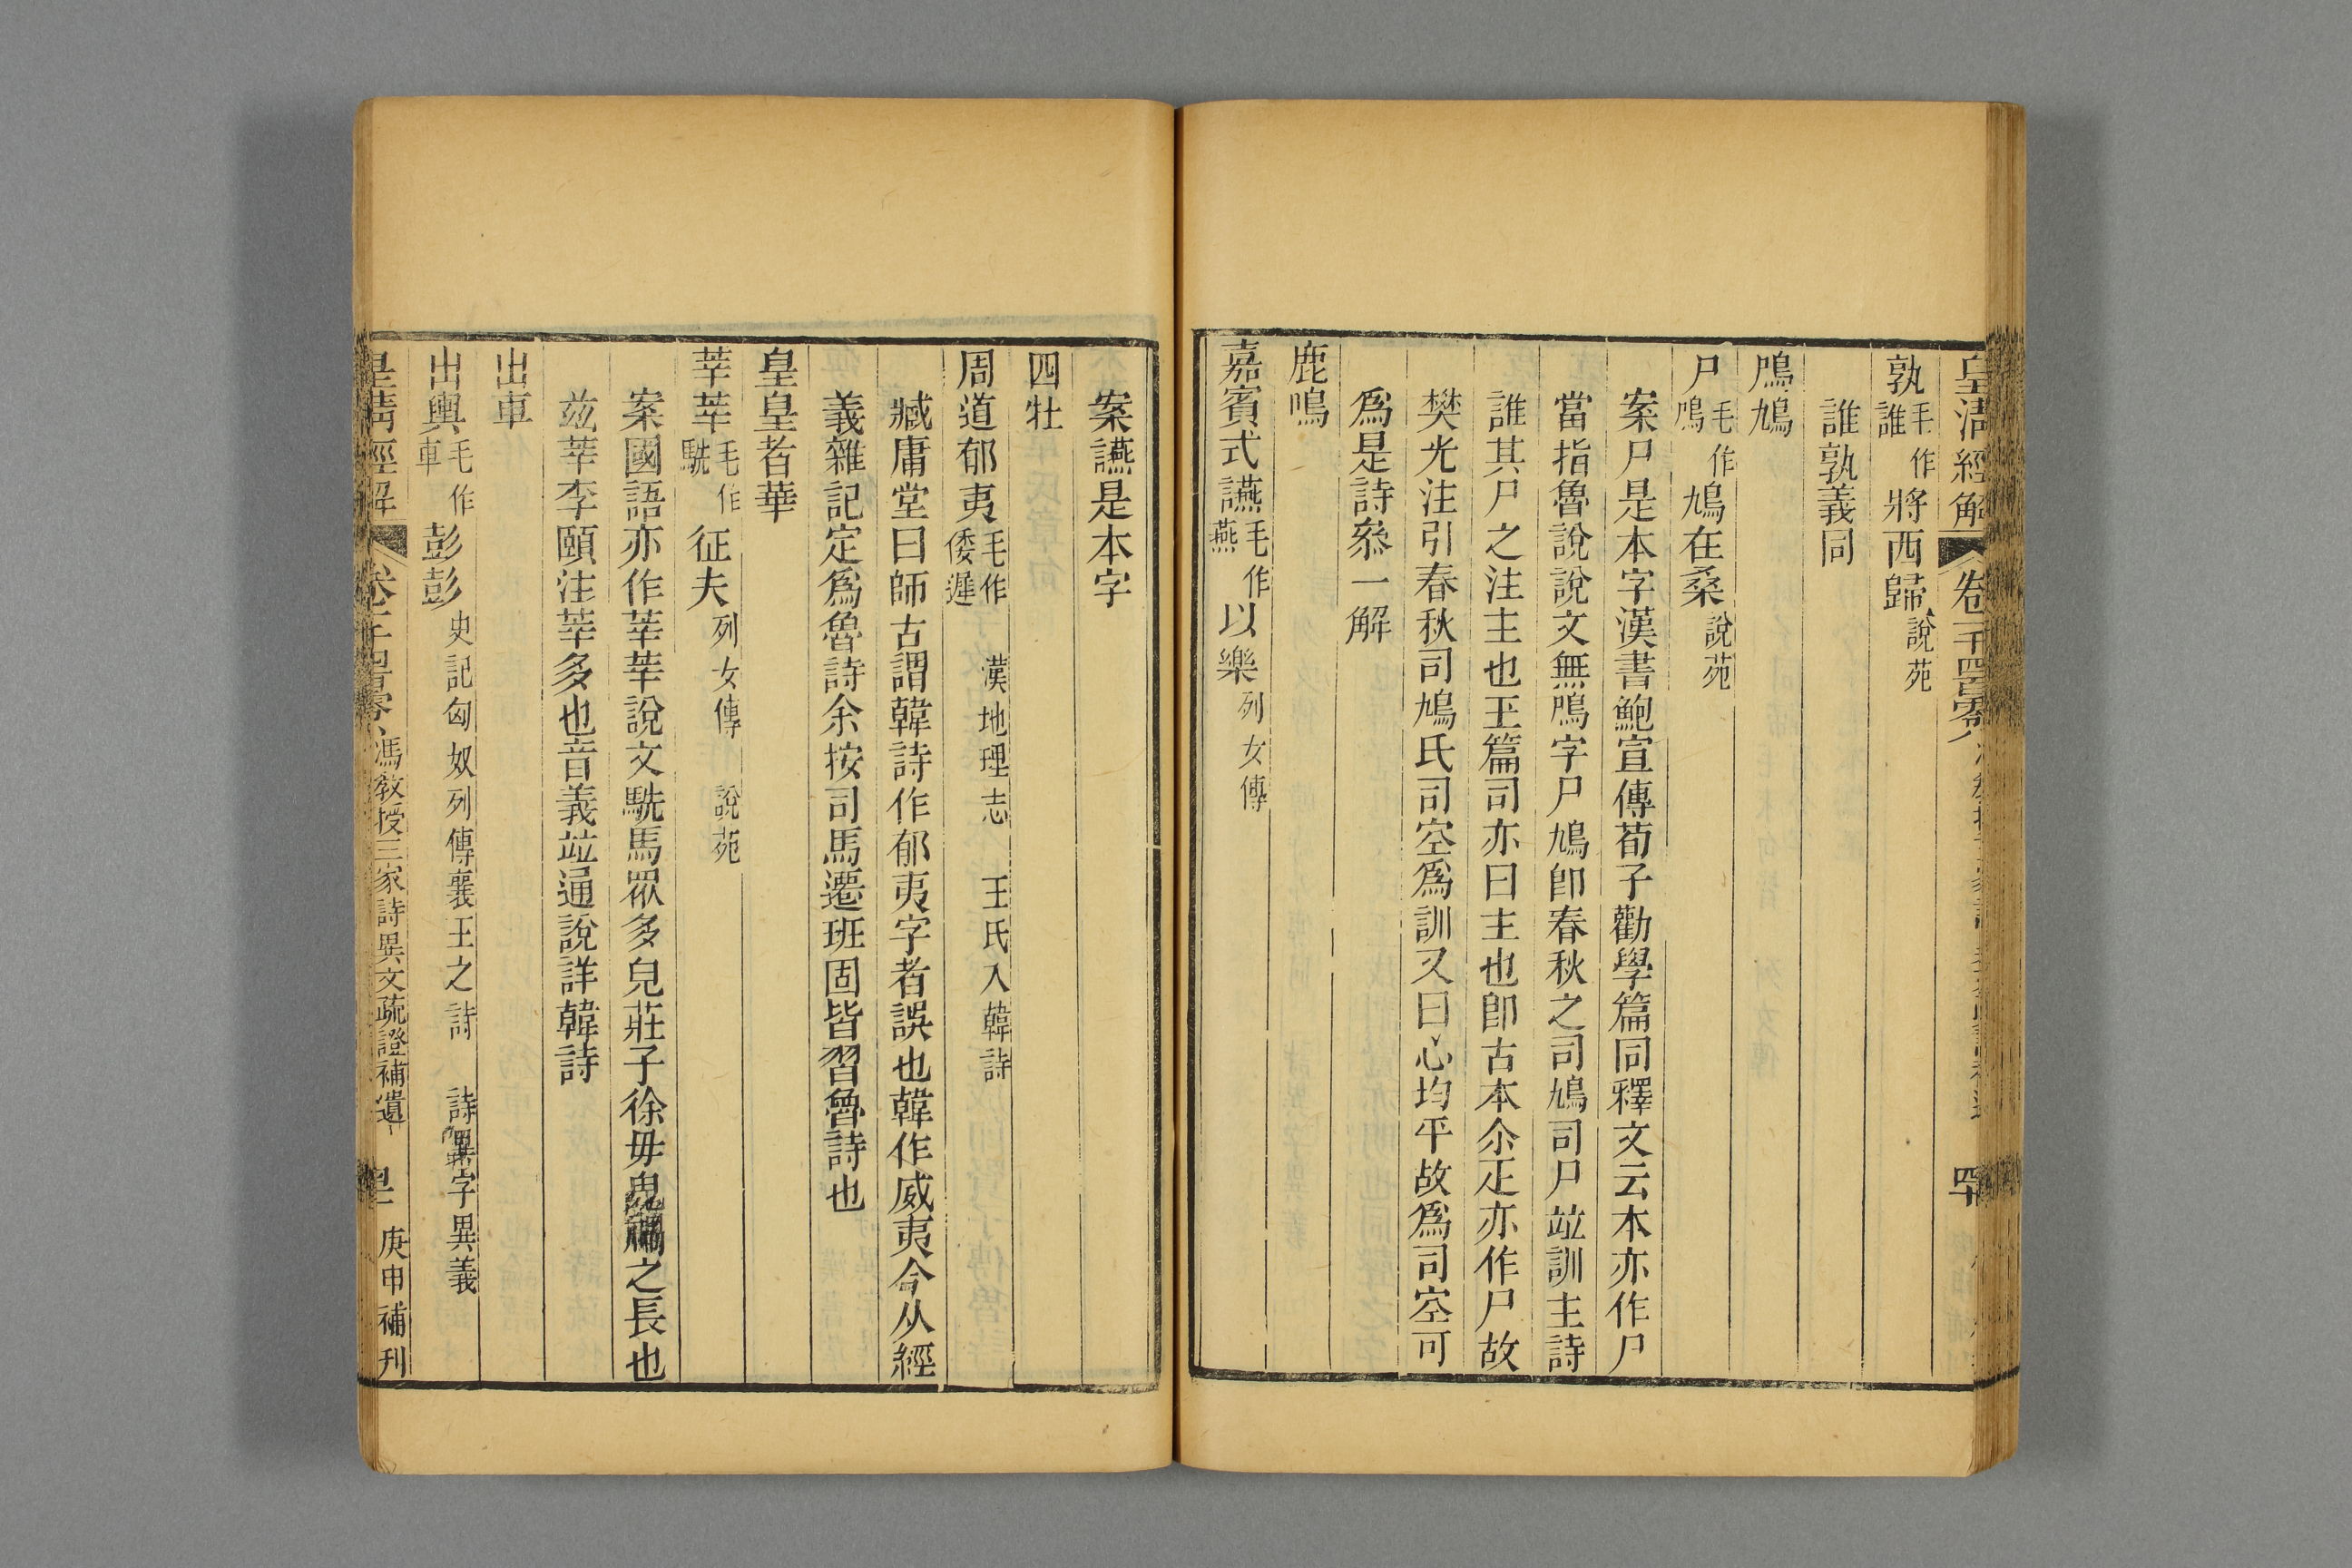 皇清經解 卷一千四百零八
孰毛作誰將西歸說苑
誰孰義同
鳲鳩
尸毛作鳲鳩在桑說苑
案尸是本字漢書鮑宣傳荀子勸學篇同釋文云本亦作尸
當指魯說說文無鳲字尸鳩卽春秋之司鳩司尸竝訓主詩
誰其尸之注主也玉篇司亦曰主也卽古本尒疋亦作尸故
樊光注引春秋司鳩氏司空爲訓又曰心均平故爲司空可
爲是詩叅一解
鹿鳴
嘉賓式讌毛作燕以樂列女傳
案讌是本字
四牡
周道郁夷毛作倭遲 漢地理志 王氏入韓詩
臧庸堂曰師古謂韓詩作郁夷字者誤也韓作威夷今从經
義雜記定爲魯詩余按司馬遷班固皆習魯詩也
皇皇者華
莘莘毛作駪征夫列女傳 說苑
案國語亦作莘莘說文駪馬眾多皃莊子徐毋鬼之長也
茲莘李頤注莘多也音義竝通說詳韓詩
出車
出輿毛作車彭彭史記匈奴列傳襄王之詩 詩異字異義
皇清經解 卷一千四百零八 馮敎授三家詩異文疏證補遺 庚申補刊